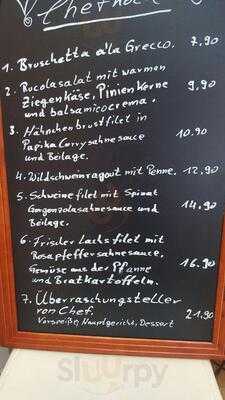 1. Bruschetta a'la Grecco. 7.90
2. Rucolasalat mit warmen
Ziegenkäse, Pinienkerne 9.90
und balsamicocrema.
3. Hähnchenbrustfilet in
Paprika Currysahnesauce 10.90
und Beilage.
4. Wildschweinragout mit Penne. 12.90
5. Schweinefilet mit Spinat
Gorgonzolasahnesauce und 14.90
Beilage.
6. Frischer Lachsfilet mit
Rosapfeffersahnesauce,
Gemüse aus der Pfanne 16.90
und Bratkartoffeln.
7. Überraschungsteller
von Chef. 21.90
Vorspeise, Hauptgericht, Dessert
Sluurpy